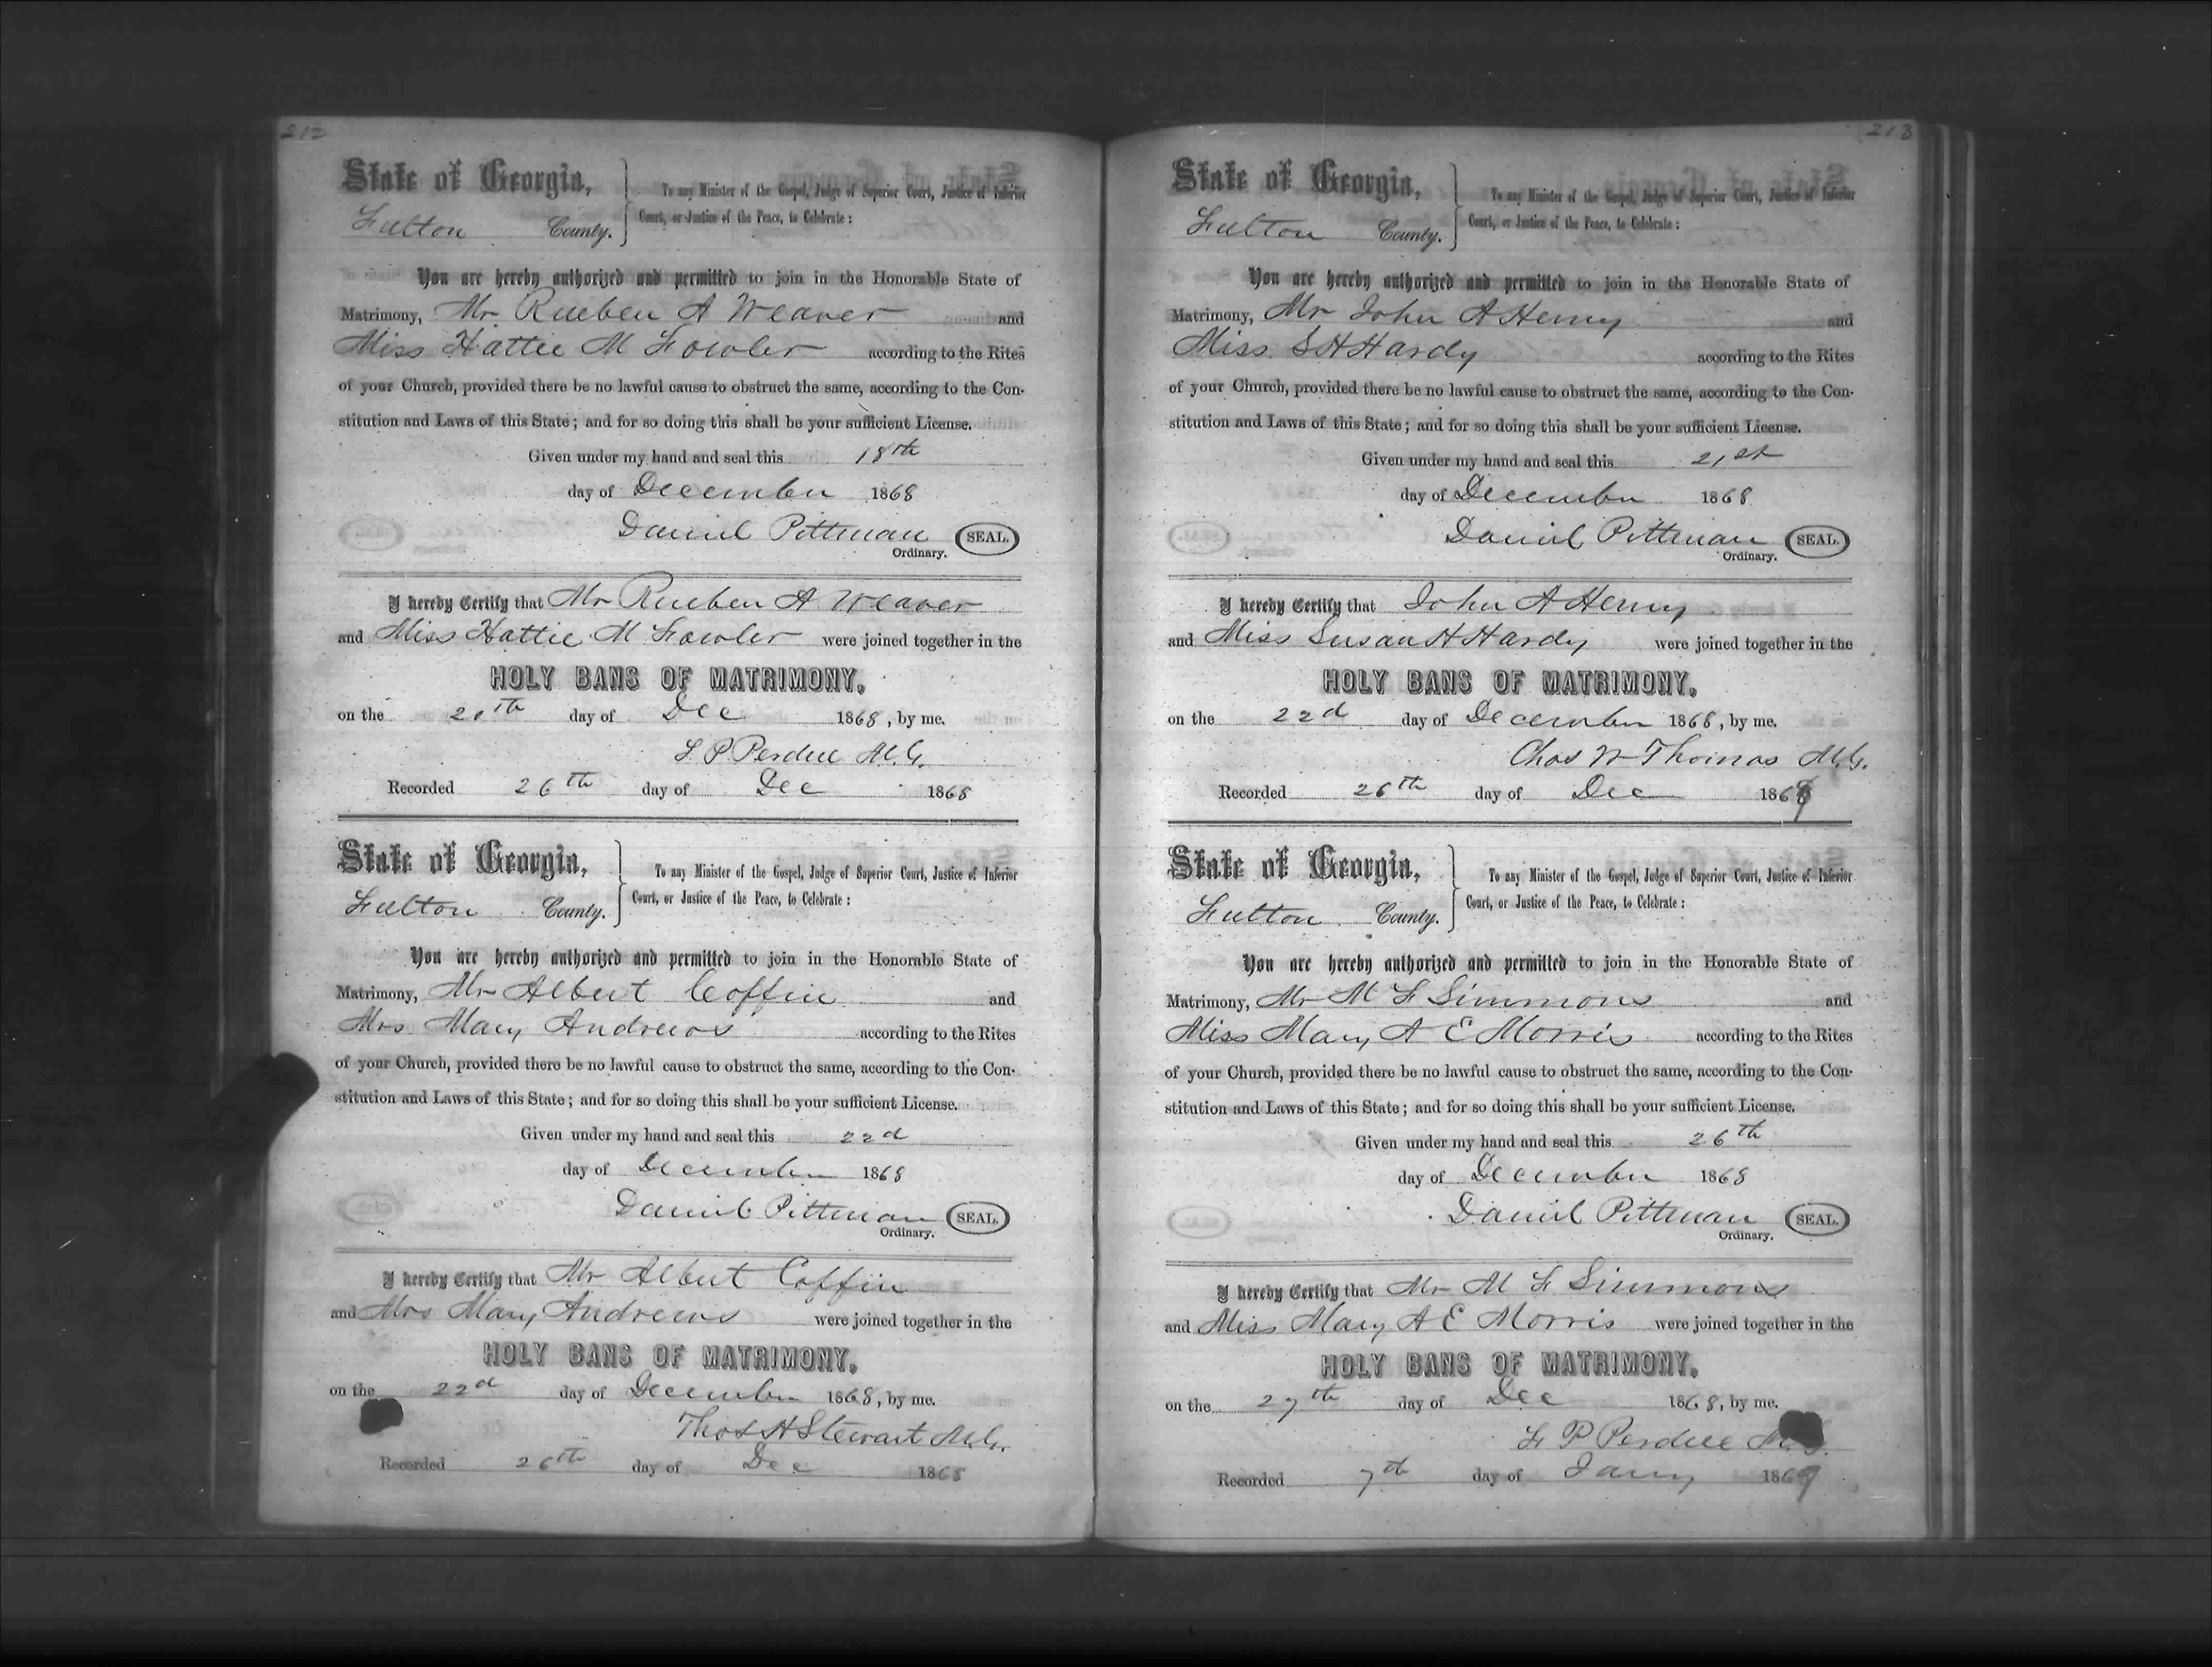 212
State of Georgia,
Fulton County.
To any Minister of the Gospel, Judge of Superior Court, Justice of Inferior
Court, or Justice of the Peace, to Celebrate:
You are hereby authorized and permitted to join in the Honorable State of
Matrimony, Mr Rueben A Weaver and
Miss Hattie M Fowler according to the Rites
of your Church, provided there be no lawful cause to obstruct the same, according to the Con-
stitution and Laws of this State; and for so doing this shall be your sufficient License.
Given under my hand and seal this 18th
day of December 1868
Daniel Pittman SEAL.
Ordinary.
I hereby Certify that Mr Rueben A Weaver
and Miss Hattie M Fowler were joined together in the
HOLY BANS OF MATRIMONY,
on the 20th day of Dec 1868, by me.
F P Perdue M.G.
Recorded 26th day of Dec 1868
State of Georgia,
Fulton County.
To any Minister of the Gospel, Judge of Superior Court, Justice of Inferior
Court, or Justice of the Peace, to Celebrate:
You are hereby authorized and permitted to join in the Honorable State of
Matrimony, Mr Albert Coffin and
Mrs Mary Andrews according to the Rites
of your Church, provided there be no lawful cause to obstruct the same, according to the Con-
stitution and Laws of this State; and for so doing this shall be your sufficient License.
Given under my hand and seal this 22d
day of December 1868
Daniel Pittman SEAL.
Ordinary.
I hereby Certify that Mr Albert Coffin
and Mrs Mary Andrews were joined together in the
HOLY BANS OF MATRIMONY,
on the 22d day of December 1868, by me.
Thos H Stewart M.G.
Recorded 26th day of Dec 1868
213
State of Georgia,
Fulton County.
To any Minister of the Gospel, Judge of Superior Court, Justice of Inferior
Court, or Justice of the Peace, to Celebrate:
You are hereby authorized and permitted to join in the Honorable State of
Matrimony, Mr John A Henry and
Miss S H Hardy according to the Rites
of your Church, provided there be no lawful cause to obstruct the same, according to the Con-
stitution and Laws of this State; and for so doing this shall be your sufficient License.
Given under my hand and seal this 21st
day of December 1868
Daniel Pittman SEAL.
Ordinary.
I hereby Certify that John A Henry
and Miss Susan H Hardy were joined together in the
HOLY BANS OF MATRIMONY,
on the 22d day of December 1868, by me.
Chas W Thomas M.G.
Recorded 26th day of Dec 1868
State of Georgia,
Fulton County.
To any Minister of the Gospel, Judge of Superior Court, Justice of Inferior
Court, or Justice of the Peace, to Celebrate:
You are hereby authorized and permitted to join in the Honorable State of
Matrimony, Mr M F Simmons and
Miss Mary A E Morris according to the Rites
of your Church, provided there be no lawful cause to obstruct the same, according to the Con-
stitution and Laws of this State; and for so doing this shall be your sufficient License.
Given under my hand and seal this 26th
day of December 1868
Daniel Pittman SEAL.
Ordinary.
I hereby Certify that Mr M F Simmons
and Miss Mary A E Morris were joined together in the
HOLY BANS OF MATRIMONY,
on the 27th day of Dec 1868, by me.
F P Perdue M.G.
Recorded 7th day of Jany 1869